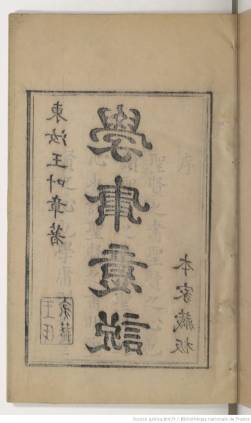 東汝王叶章著
學庸意說
本家藏板
Source gallica.bnf.fr / Bibliothèque nationale de France